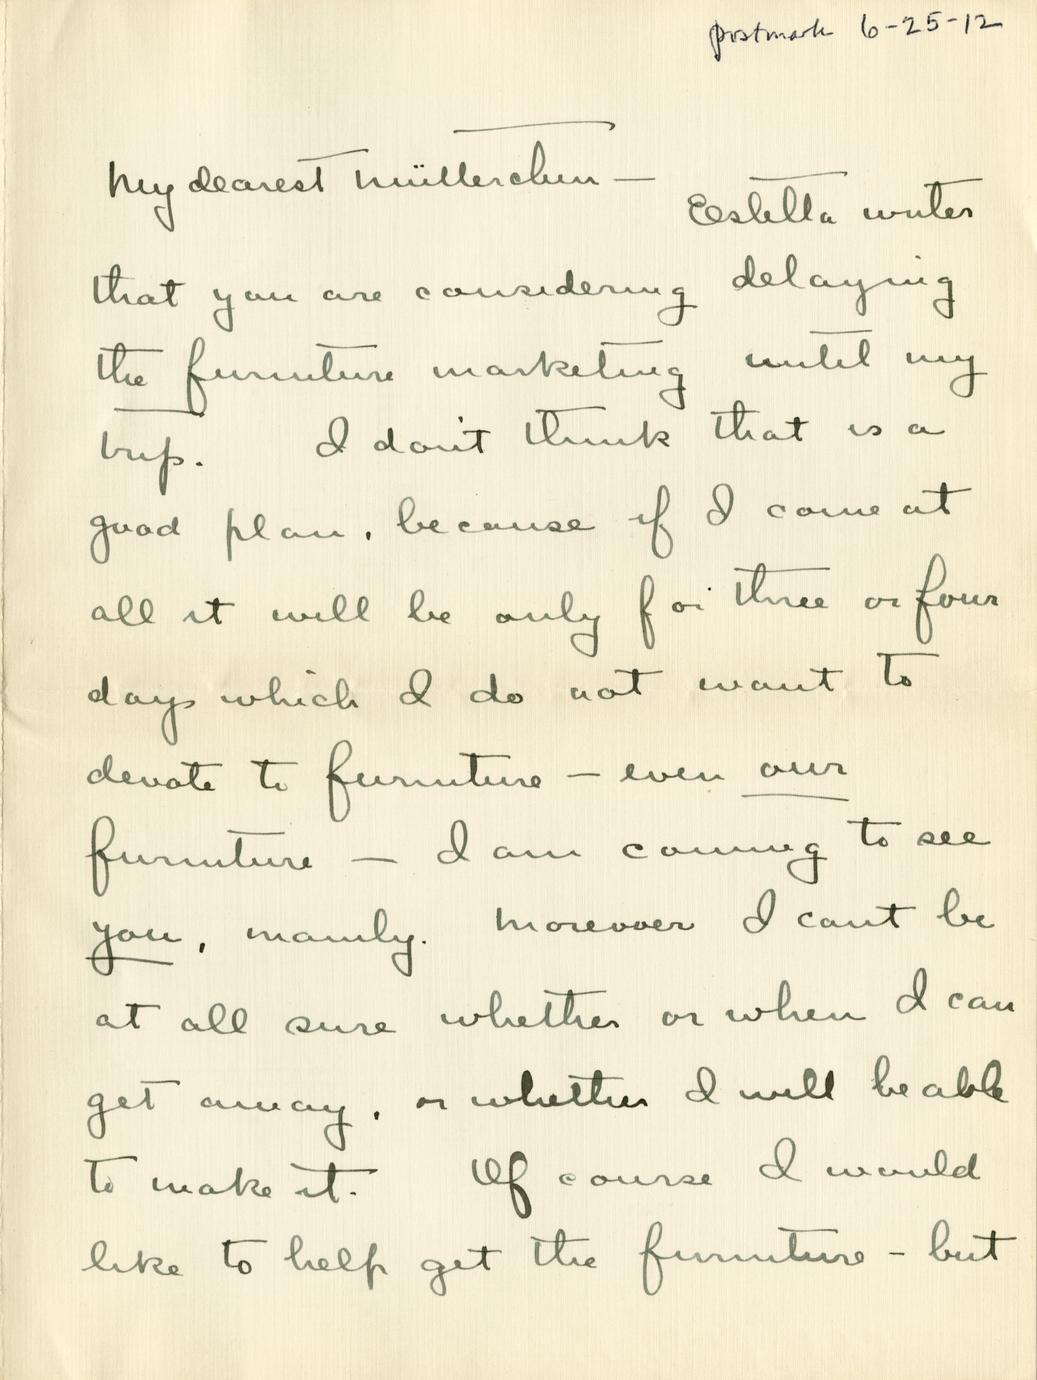 postmark 6-25-12
My dearest Mütterchen —
Estella writes
that you are considering delaying
the furniture marketing until my
trip. I don't think that is a
good plan, because if I come at
all it will be only for three or four
days which I do not want to
devote to furniture — even our
furniture — I am coming to see
you, mainly. Moreover I cant be
at all sure whether or when I can
get away, or whether I will be able
to make it. Of course I would
like to help get the furniture - but